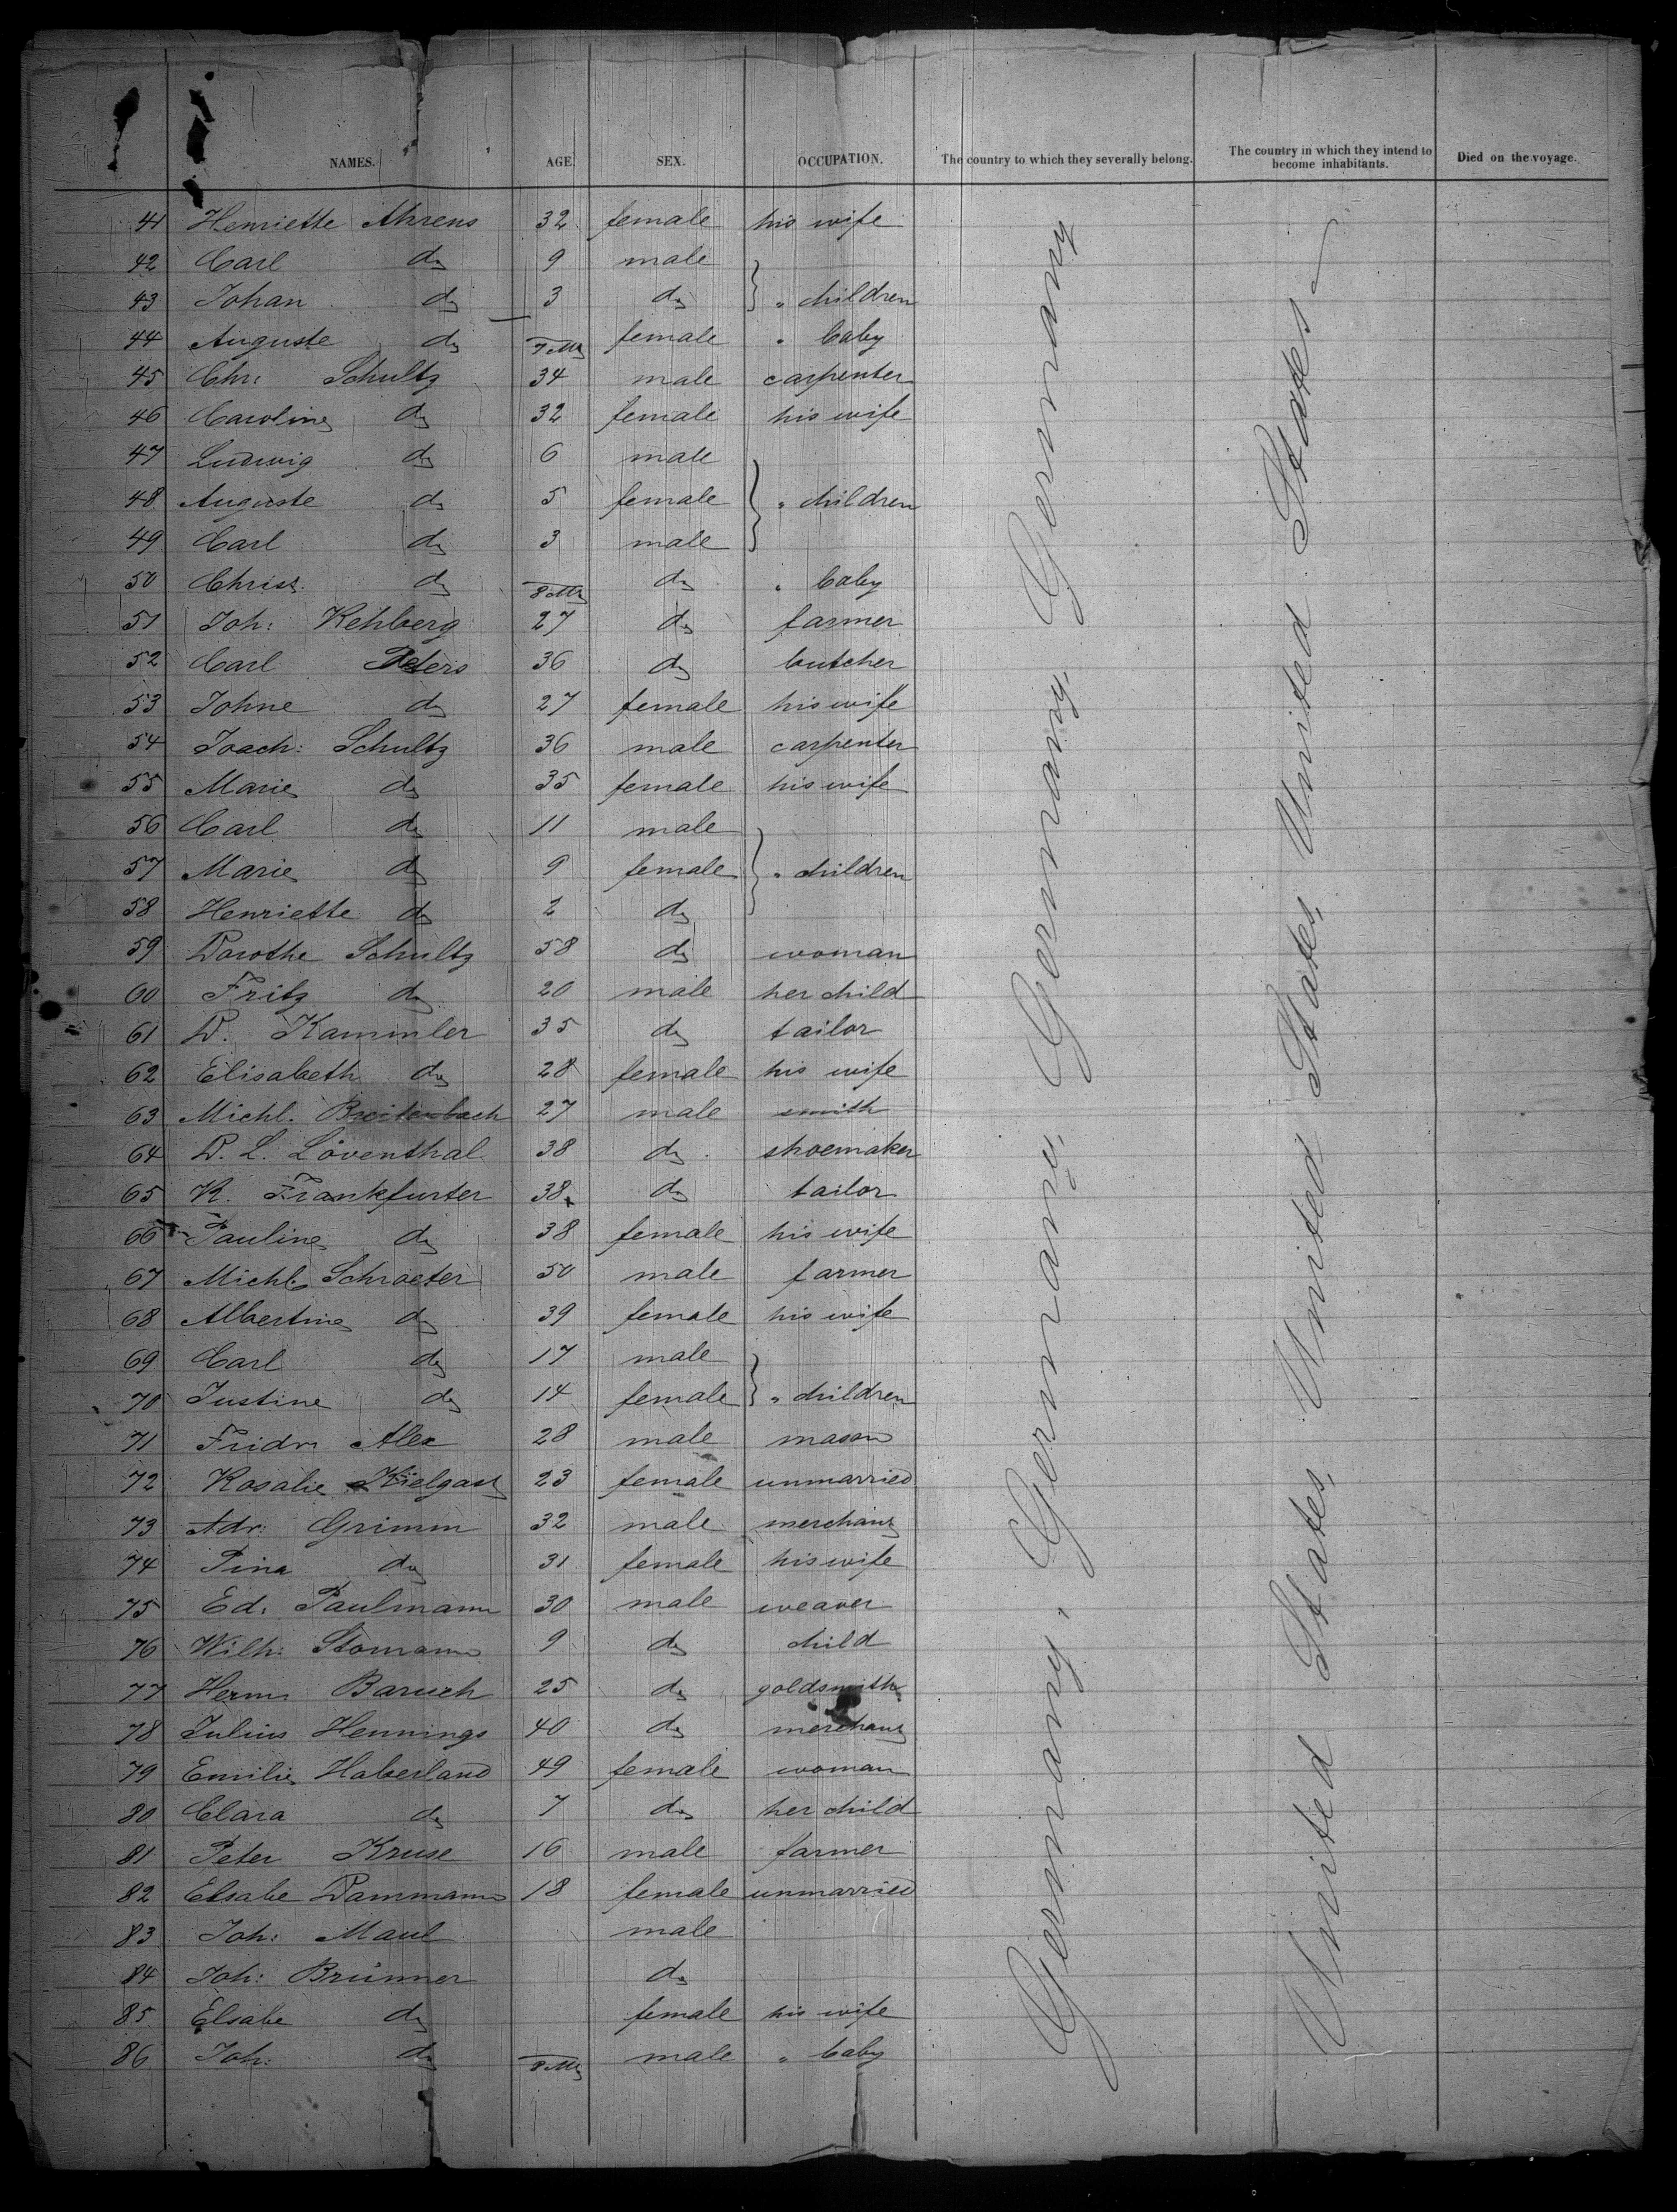 NAMES. AGE. SEX. OCCUPATION. The country to which they severally belong. The country in which they intend to become inhabitants. Died on the voyage.
41 Henriette Ahrens 32 female his wife
42 Carl do 9 male
43 Johan do 3 do } " children
44 Auguste do 7 Mts female " baby
45 Chr: Schultz 34 male carpenter
46 Caroline do 32 female his wife
47 Ludwig do 6 male
48 Auguste do 5 female } " children
49 Carl do 3 male
50 Christ. do 8 Mts do " baby
51 Joh: Kehberg 27 do farmer
52 Carl Peters 36 do butcher
53 Johne do 27 female his wife
54 Joach: Schultz 36 male carpenter
55 Marie do 35 female his wife
56 Carl do 11 male
57 Marie do 9 female } " children
58 Henriette do 2 do
59 Dorothe Schultz 58 do woman
60 Fritz do 20 male her child
61 D. Kammler 35 do tailor
62 Elisabeth do 28 female his wife
63 Michl. Breitenbach 27 male smith
64 D. L. Löventhal 38 do shoemaker
65 K. Frankfurter 38 do tailor
66 Pauline do 38 female his wife
67 Michl. Schroeter 50 male farmer
68 Albertine do 39 female his wife
69 Carl do 17 male
70 Justine do 14 female } " children
71 Fridr. Alex 28 male mason
72 Rosalie Kielgast 23 female unmarried
73 Adr: Grimm 32 male merchant
74 Pina do 31 female his wife
75 Ed. Paulmann 30 male weaver
76 Wilh: Stomann 9 do child
77 Herm. Baruch 25 do goldsmith
78 Julius Hennings 40 do merchant
79 Emilie Haberland 49 female woman
80 Clara do 7 do her child
81 Peter Kruse 16 male farmer
82 Elsabe Dammann 18 female unmarried
83 Joh: Maul male
84 Joh: Brünner do
85 Elsabe do female his wife
86 Joh: do 8 Mts male " baby
Germany, Germany, Germany, Germany
United States, United States, United States